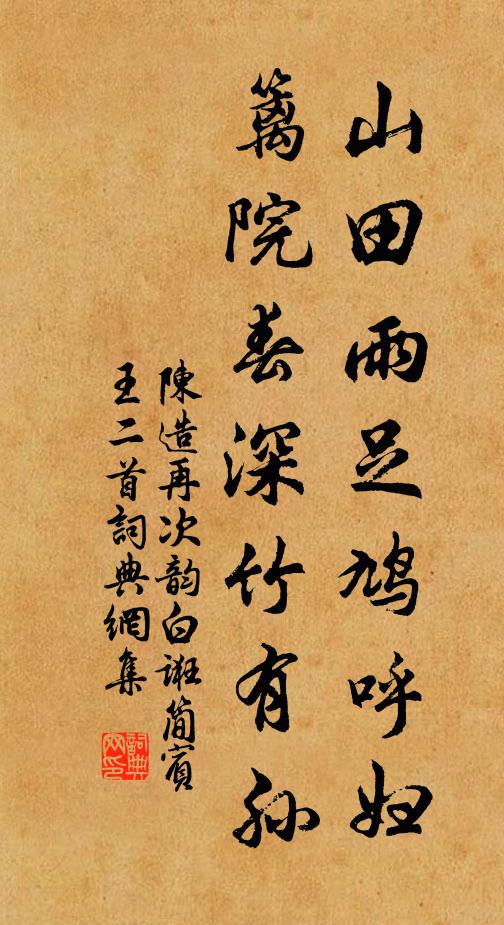 山田雨足鳩呼婦
籬院春深竹有孙
陳造再次韵白誑簡賓
王二首詞典網集
詞典網印